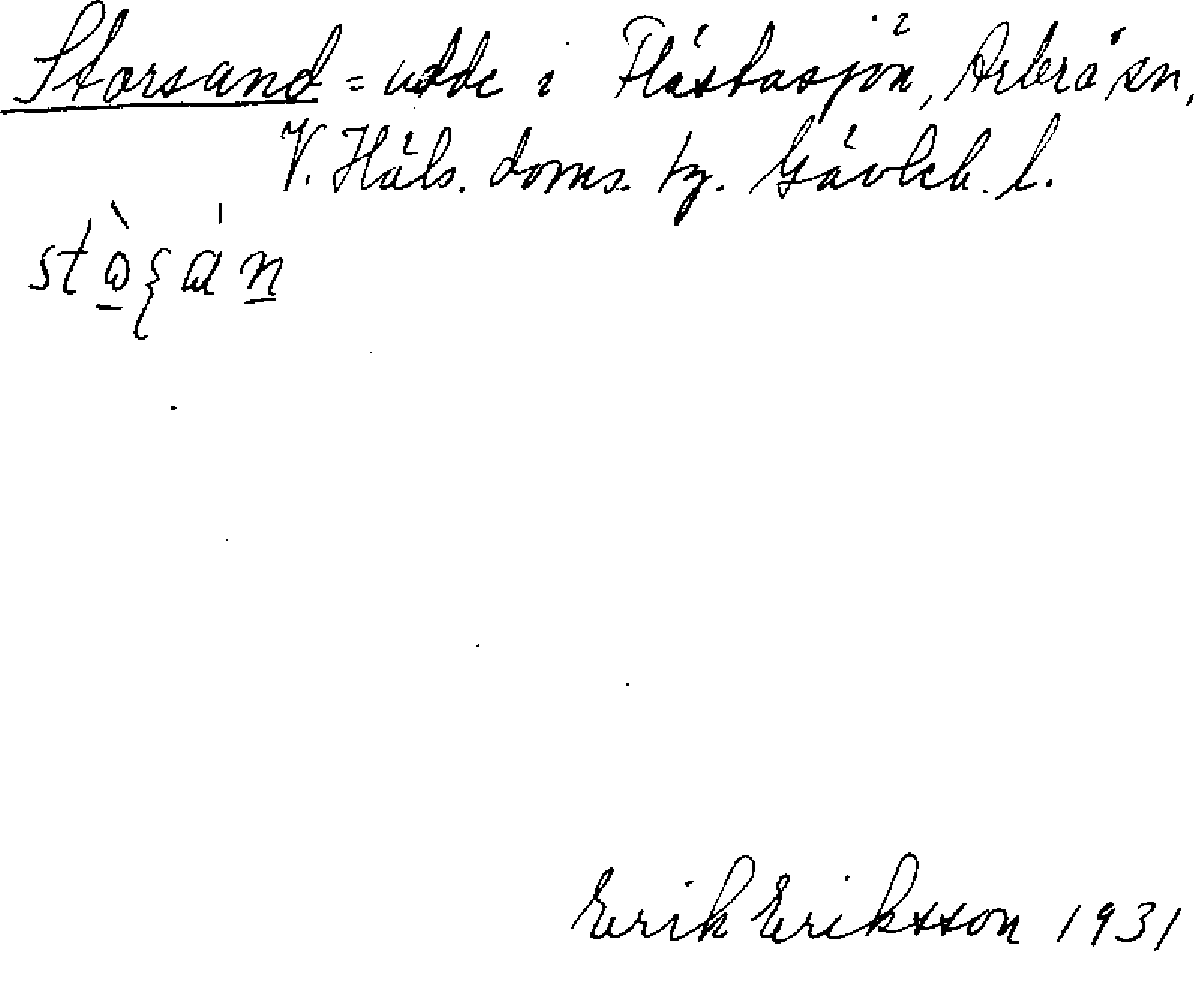 Storsand = udde i Flästasjön, Arbrå sn,
V. Häls. doms. tg. Gävleb. l.
Erik Eriksson 1931